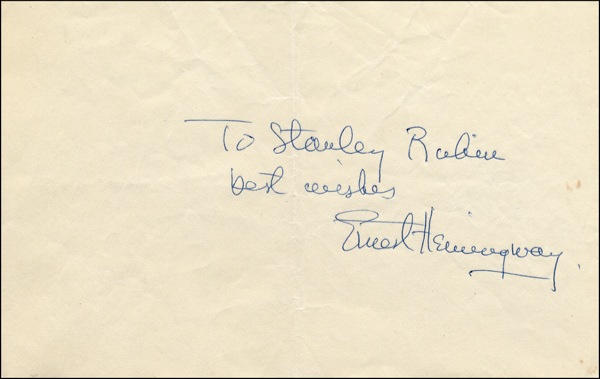 To Stanley Rubin
best wishes
Ernest Hemingway.